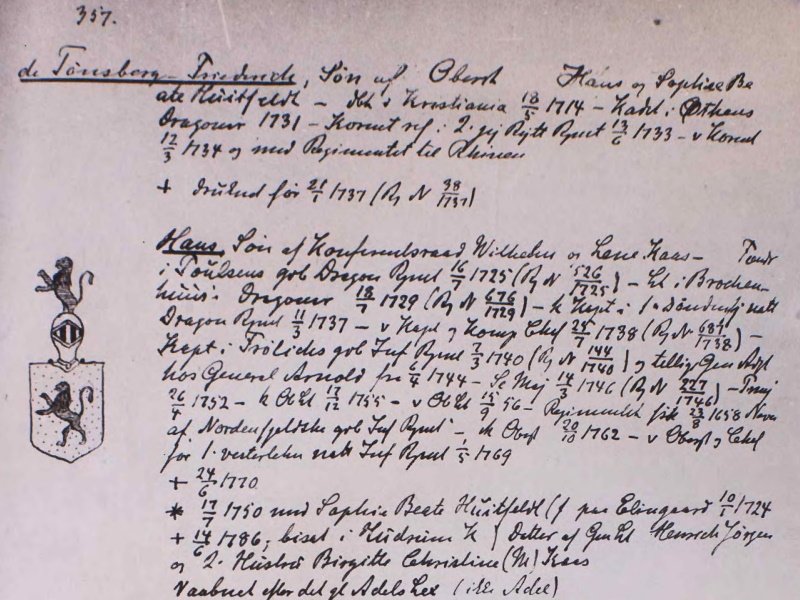 357.
de Tønsberg - Friederich, Søn af Oberst Hans og Sophie Be
ate Huitfeldt - dbt i Kristiania 18/5 1714 - Kadt i Øtkens
Dragoner 1731 - Kornet ref. i 2. gej Rytt Rgmt 13/6 1733 - v Kornet
12/3 1734 og med Regimentet til Rhinen
+ druknet før 21/1 1737 (Rg N 38/1737)
Hans, Søn af Konferentsraad Wilhelm og Lene Kaas - Fendr
i Toulsens gvb Dragon Rgmt 16/7 1725 (Rg N 526/1725) - Lt i Brochen-
huus's Dragoner 18/7 1729 (Rg N 676/1729) - k Kapt i 1 Søndenfj natl
Dragon Rgmt 11/3 1737 - v Kapt og Komp Chef 28/7 1738 (Rg N 684/1738) -
Kapt i Frölichs gvb Inf Rgmt 7/3 1740 (Rg N 144/1740) og tillige Gen Adjt
hos General Arnold fra 6/4 1744 - Sc Maj 14/3 1746 (Rg N 227/1746) - Pmaj
26/4 1752 - k Obst 3/12 1755 - v Oblt 15/9 56 - Regimentet fik 23/8 1658 Navn
af Nordenfjeldske gvb Inf Rgmt - k Obst 20/10 1762 - v Oberst og Chef
for 1. vesterlehn natl Inf Rgmt 1/5 1769
+ 24/6 1770
* 17/7 1750 med Sophie Beate Huitfeldt (f paa Elingaard 10/1 1724
+ 14/6 1786, bisat i Hudrum K) Datter af Gen Lt Henrich Jørgen
og 2. Hustru Birgitte Christine (M) Kaas
Vaabnet efter det gl Adels Lex (ikke Adel)